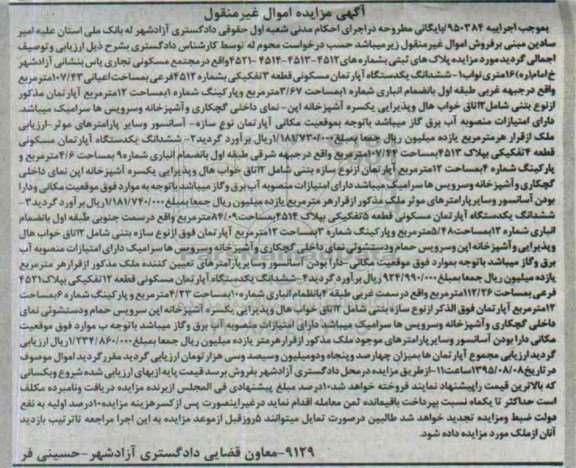 آگهی مزایده اموال غیرمنقول
بموجب اجراییه ۹۵۰۳۸۴/بایگانی مطروحه دراجرای احکام مدنی شعبه اول حقوقی دادگستری آزادشهر له بانک ملی استان علیه امیر
سادین مبنی برفروش اموال غیرمنقول زیرمیباشد حسب درخواست محوم له توسط کارشناس دادگستری بشرح ذیل ارزیابی وتوصیف
اجمالی گردید مورد مزایده پلاک های ثبتی بشماره های ۴۵۱۲-۴۵۱۳-۴۵۱۴-۴۵۲۱واقع درمجتمع مسکونی تجاری یاس بنشانی آزادشهر
خ امام(ره)۱۶متری نواب۱-ششدانگ یکدستگاه آپارتمان مسکونی قطعه ۳تفکیکی بشماره ۴۵۱۲فرعی بمساحت اعیانی ۱۰۷/۴۳مترمربع
واقع درجبهه غربی طبقه اول بانضمام انباری شماره ۱بمساحت ۳/۶۷مترمربع وپارکینگ شماره ۱بمساحت ۱۲مترمربع آپارتمان مذکور
ازنوع بتنی شامل ۲اتاق خواب هال وپذیرایی یکسره آشپزخانه اپن- نمای داخلی گچکاری وآشپزخانه وسرویس ها سرامیک میباشد.
دارای امتیازات منصوبه آب برق گاز میباشد باتوجه بموقعیت مکانی آپارتمان نوع سازه- آسانسور وسایر پارامترهای موثر-ارزیابی
ملک ازقرار هرمترمربع یازده میلیون ریال جمعا بمبلغ۱/۱۸۷/۷۳۰/۰۰۰ریال برآورد گردید۲- ششدانگ یکدستگاه آپارتمان مسکونی
قطعه ۴تفکیکی بپلاک ۴۵۱۳بمساحت ۱۰۷/۴۴مترمربع واقع درجبهه شرقی طبقه اول بانضمام انباری شماره۹ بمساحت ۴/۶مترمربع و
پارکینگ شماره ۴ بمساحت ۱۲مترمربع آپارتمان ازنوع سازه بتنی شامل ۲اتاق خواب هال وپذیرایی یکسره آشپزخانه اپن نمای داخلی
گچکاری وآشپزخانه وسرویس ها سرامیک میباشد دارای امتیازات منصوبه آب برق وگاز میباشد باتوجه به موارد فوق موقعیت مکانی ودارا
بودن آسانسور وسایرپارامترهای موثر ملک مذکور ازقرارهر مترمربع یازده میلیون ریال جمعا بمبلغ۱/۱۸۱/۷۴۰/۰۰۰ ریال برآورد گردید۳-
ششدانگ یکدستگاه آپارتمان مسکونی قطعه ۵تفکیکی بپلاک ۴۵۱۴بمساحت۸۴/۰۹مترمربع واقع درسمت جنوبی طبقه اول بانضمام
انباری شماره ۱۲بمساحت۵/۴۸مترمربع وپارکینگ شماره ۳بمساحت ۱۲مترمربع آپارتمان فوق ازنوع سازه بتنی شامل ۲اتاق خواب هال
وپذیرایی وآشپزخانه اپن وسرویس حمام ودستشوئی نمای داخلی گچکاری وآشپزخانه وسرویس ها سرامیک دارای امتیازات منصوبه آب
برق وگاز میباشد باتوجه بموارد فوق موقعیت مکانی -دارا بودن آسانسور وسایر پارامترهای تعیین کننده ملک مذکور ازقرار هر مترمربع
یازده میلیون ریال جمعا بمبلغ ۹۲۴/۹۹۰/۰۰۰ ریال برآورد گردید۴-ششدانگ یکدستگاه آپارتمان مسکونی قطعه ۱۲تفکیکی بپلاک۴۵۲۱
فرعی بمساحت ۱۱۲/۲۶مترمربع واقع درسمت غربی طبقه ۴بانضمام انباری شماره۱۰ بمساحت ۴/۲۳مترمربع وپارکینگ شماره ۶بمساحت
۱۲مترمربع آپارتمان فوق الذکر ازنوع سازه بتنی شامل ۲اتاق خواب هال وپذیرایی یکسره آشپزخانه اپن سرویس حمام ودستشوئی نمای
داخلی گچکاری وآشپزخانه وسرویس ها سرامیک میباشد دارای امتیازات منصوبه آب برق وگاز میباشد باتوجه ب موارد فوق موقعیت
مکانی دارا بودن آسانسور وسایر پارامترهای موجود ملک مذکور از قرار هرمتر یازده میلیون ریال جمعا بمبلغ۱/۲۳۴/۸۶۰/۰۰۰ریال ارزیابی
گردید ارزیابی مجموع آپارتمان ها بمیزان چهارصد وپنجاه ودومیلیون وسیصد وسی هزار تومان ارزیابی گردید مقرر گردید اموال موصوف
درتاریخ ۱۳۹۵/۰۸/۰۸ساعت۱۱-ازطریق مزایده درمحل دادگستری آزادشهر بفروش برسد قیمت پایه ازبهای ارزیابی شده شروع وبکسانی
که بالاترین قیمت راپیشنهاد نمایند فروخته خواهد شد۱۰درصد مبلغ پیشنهادی فی المجلس ازبرنده مزایده دریافت ونامبرده مکلف
است حداکثر تا یکماه نسبت بپرداخت باقیمانده ثمن معامله اقدام نماید درغیراینصورت پس ازکسرهزینه مزایده۱۰درصد اولیه به نفع
دولت ضبط ومزایده تجدید خواهد شد طالبین درصورت تمایل میتوانند ۵روزقبل ازموعد مزایده به این اجرا مراجعه تاترتیب بازدید
آنان ازملک مورد مزایده داده شود.
۹۱۲۹-معاون قضایی دادگستری آزادشهر-حسینی فر